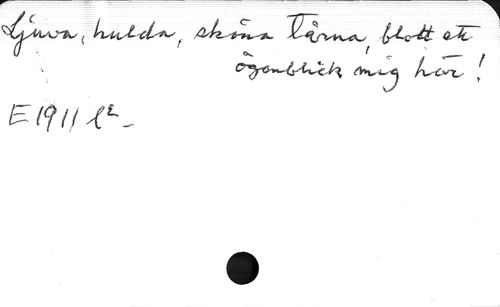 Ljuva, hulda, sköna tärna, blott ett
ögonblick mig hör!
E 1911 l